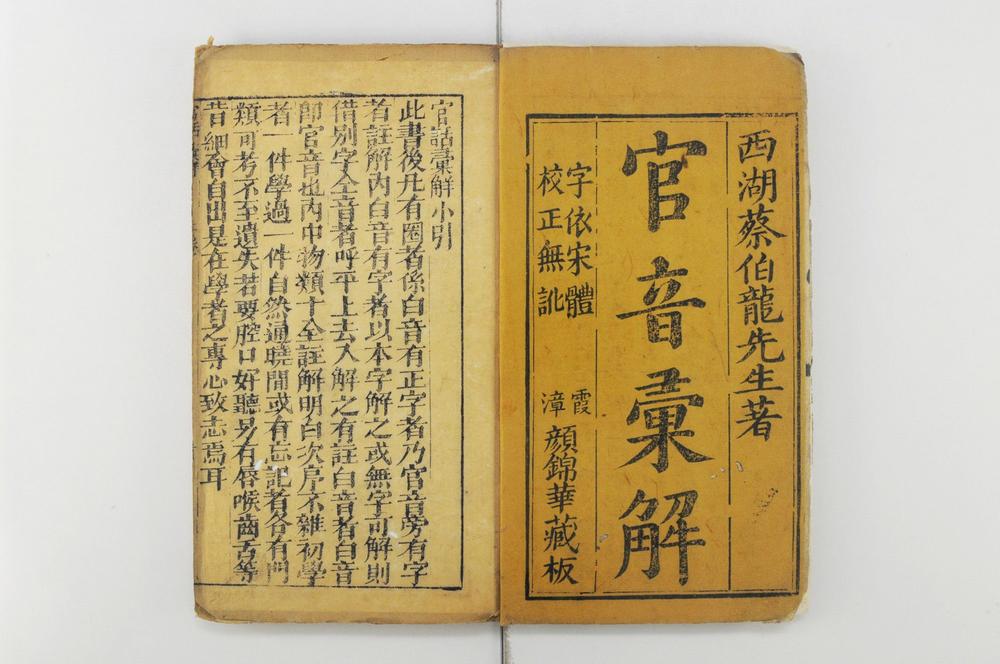 西湖蔡伯龍先生著
官音彙解
字依宋體
校正無訛
霞漳
顏錦華藏板
官話彙解小引
此書後凡有圈者係白音有正字者乃官音旁有字
者註解內白音有字者以本字解之或無字可解則
借別字仝音者呼平上去入解之有註白音者白音
卽官音也內中物類十全註解明白次序不雜初學
者一件學過一件自然通曉間或有忘記者各有門
類可考不至遺失若要腔口好聽另有唇喉齒舌等
音細會自出是在學者之專心致志焉耳